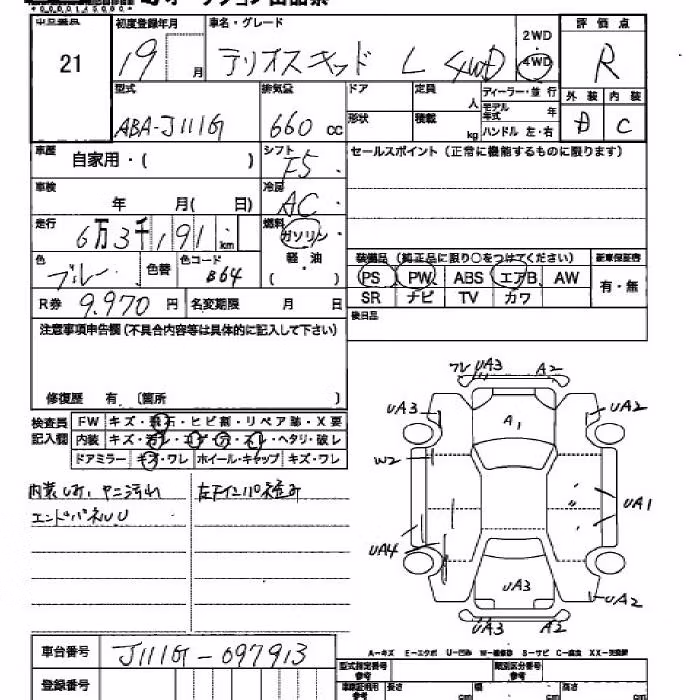 21
初度登録年月
19 月
車名・グレード
テリオスキッド L 4WD
2WD
4WD
評価点
R
外装 内装
D C
型式
ABA-J111G
排気量
660 cc
ドア
形状
定員
人
積載
kg
ディーラー・並行
モデル年式 年
ハンドル 左・右
車歴
自家用・( )
シフト
F5
セールスポイント(正常に機能するものに限ります)
車検
年 月( 日)
冷房
AC
走行
6万3千191 km
燃料
ガソリン
軽・油
( )
色
ブルー
色替
色コード
B64
装備品(純正品に限り○をつけてください)
新車保証書
PS PW ABS エアB AW
有・無
SR ナビ TV カワ
R券 9.970 円
名変期限 月 日
後日品
注意事項申告欄(不具合内容等は具体的に記入して下さい)
修復歴 有 〔箇所 〕
検査員記入欄
FW キズ・飛石・ヒビ割・リペア跡・X要
内装 キズ・・コゲ・穴・スレ・ヘタリ・破レ
ドアミラー キズ・ワレ ホイール・キャップ キズ・ワレ
エンドパネルU
ワレ UA3 A2
UA3 UA2
A1
W2
UA1
UA4
UA3
UA2
UA3 A2
A-キズ E-エクボ U-凹み W-補修跡 S-サビ C-腐食 XX-交換歴
車台番号
J111G-097913
登録番号
型式指定番号
参考
類別区分番号
参考
長さ cm
幅 cm
高さ cm